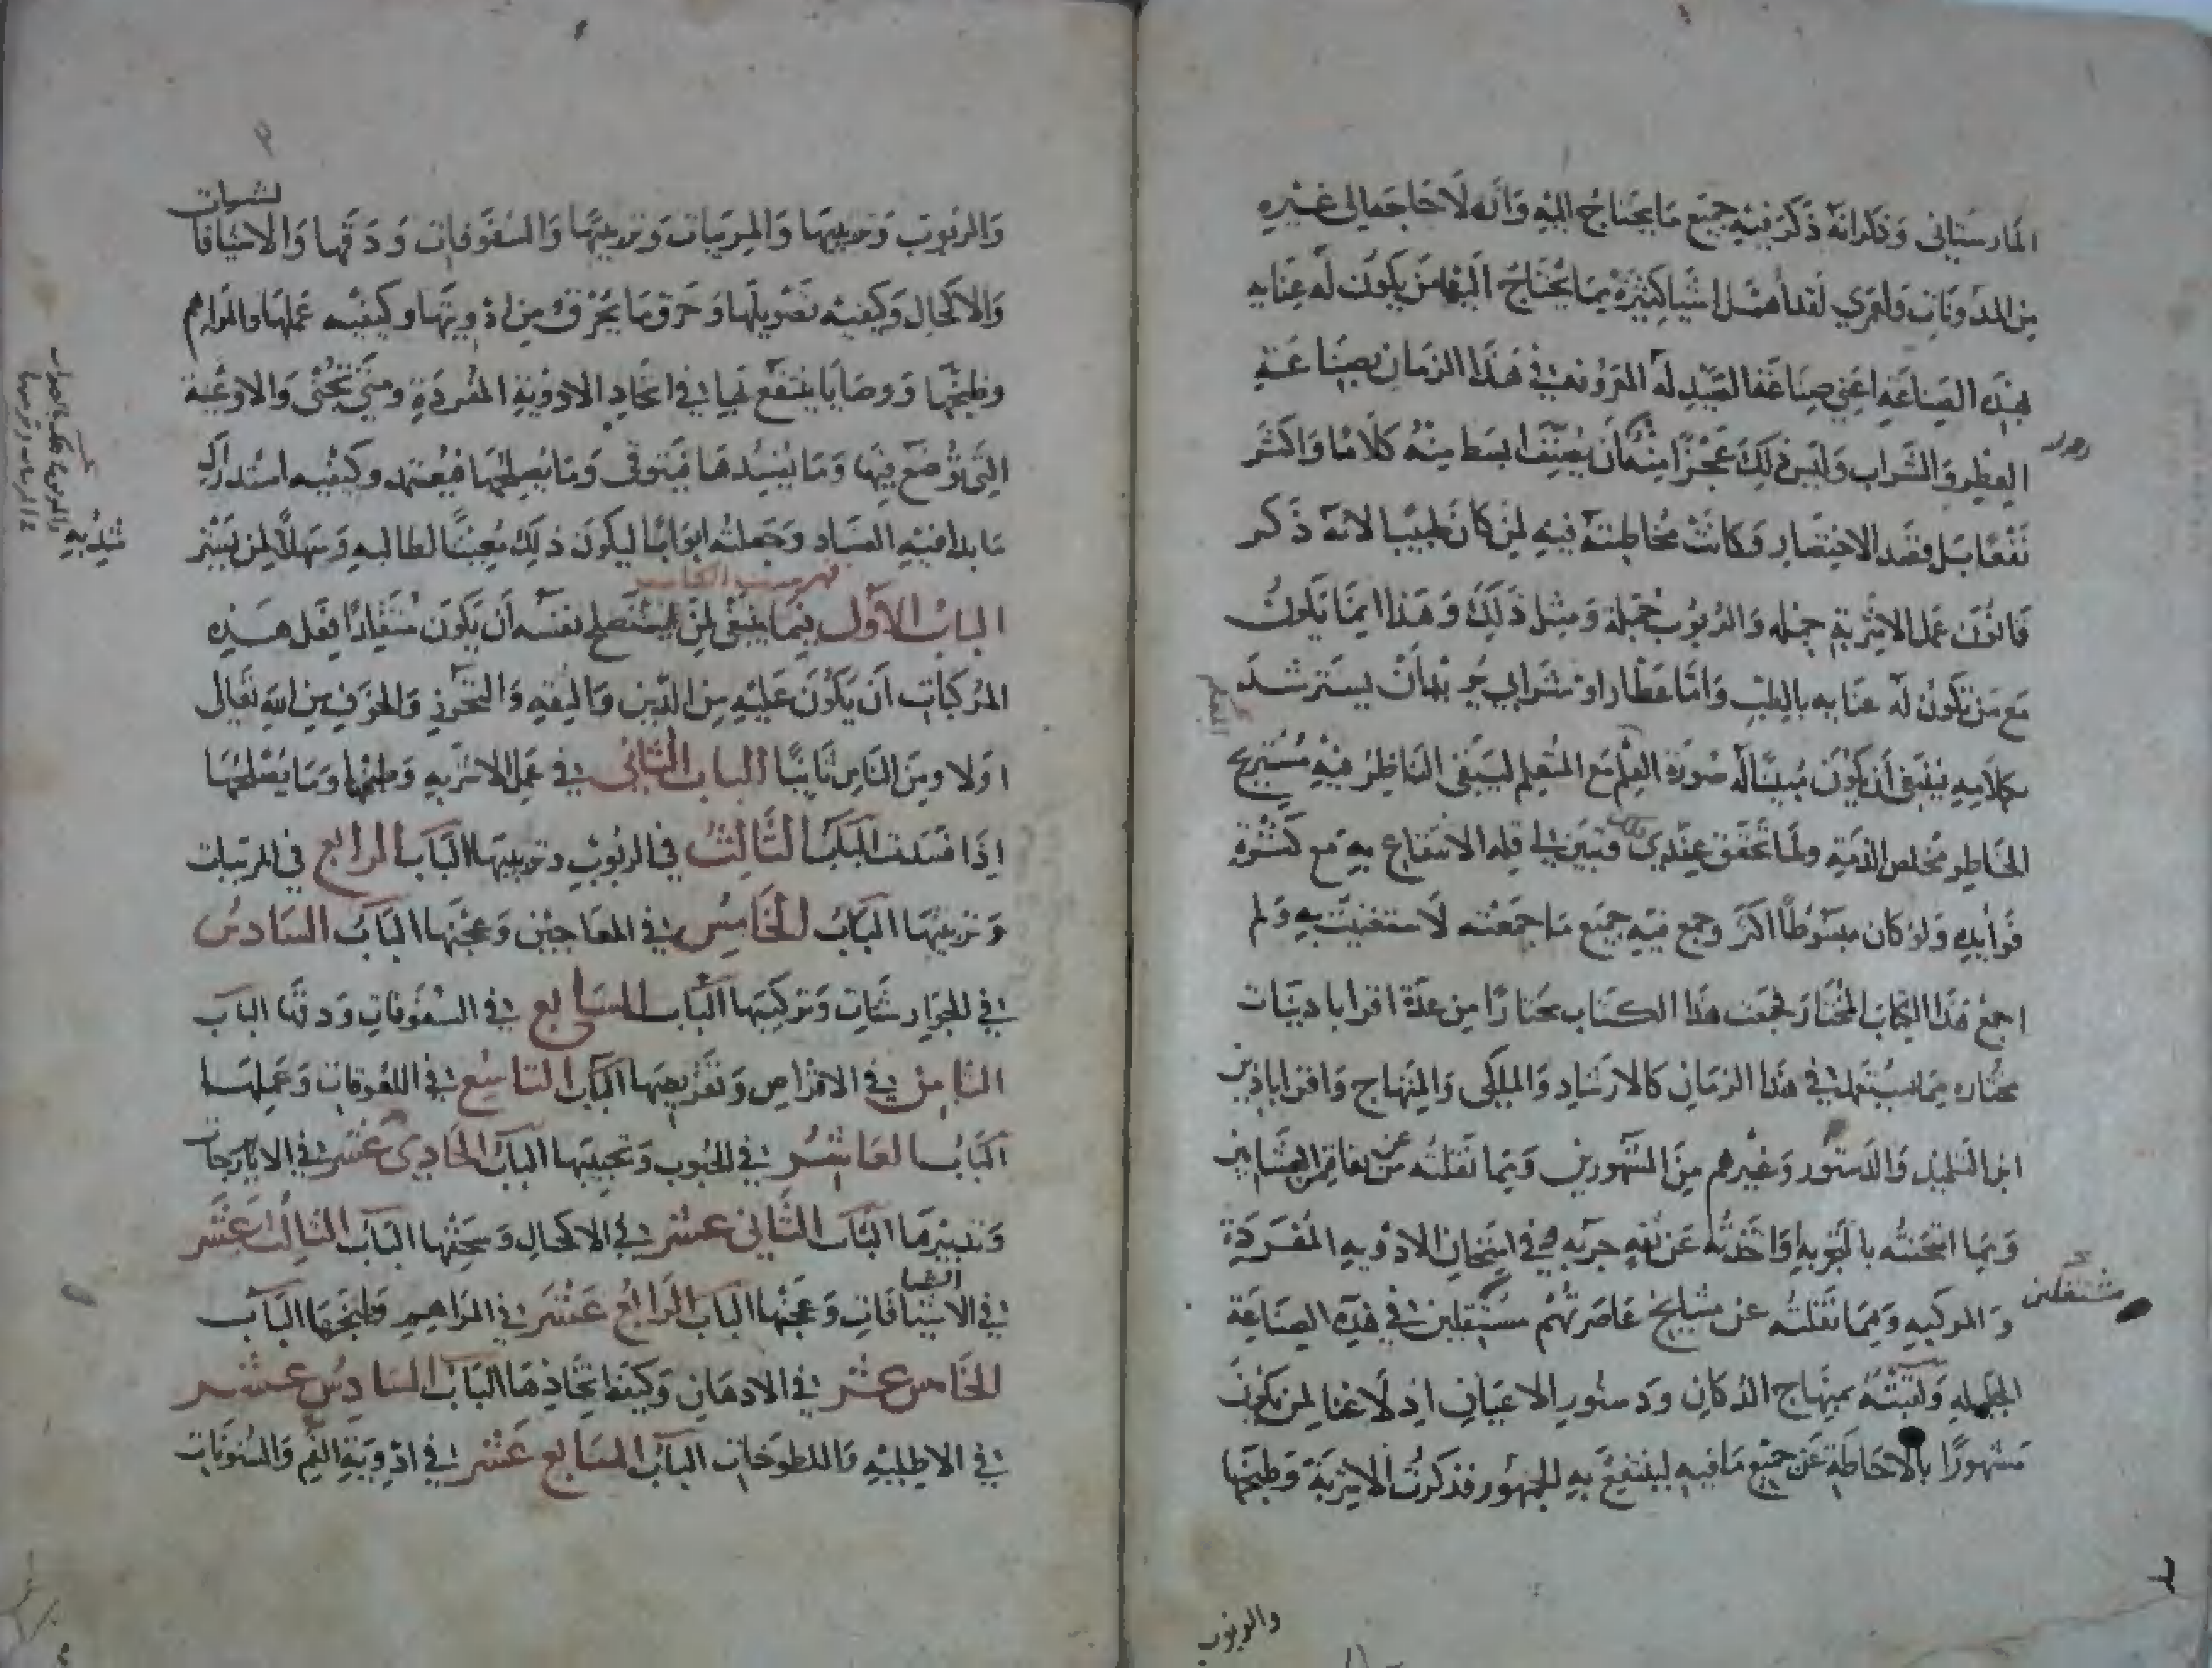 المارستانى وَذكر انهُ ذكَر فيهِ جميع مَا يحتَاجُ اليْهِ وَانه لَا حَاجَه الى غيْرِه
مِن المدَونَات وَلعمري لقد أهمَل اشيا كثيرَة مِمَا يُحتَاجُ اليْهَا مَن يكون لَه عنَايه
بهَذِه الصِناعَه اعني صِنَاعَة الصَيْدله المعرُوفه في هَذا الزمَان بصِنَاعَةِ
العِطِر وَالشَراب وَليس ذلِكَ عَجْزًا مِنْهُ أَن يُصَنِف ابسَط مِنهُ كَلامًا وَاكثر
نَفعًا بَل قصَد الاختِصَار وَكانَت مُخاطبَته فيهِ لمَن كان طبيبًا لانه ذَكر
قَانُون عَمل الاشرِبةِ جمْله وَالربُوب جمْلة وَمثل ذَلِكَ وَهَذا ايمَا يَكونُ
مَع مَن تكُون لَه عنَايه بالطبِ وَامَّا عَطار اوْ شرَابي يُريْد أَنْ يسترشدَ
بكلامِهِ فينبَغى أن يكُون مُبينًا لَه صُورَة العِلْم مَع المتعَلم ليَبقى النَاظِرُ فيْهِ مُسْتَريح
الخَاطِر مخلص الذمَةِ ولمَا تحقق عنْدِي ذلك وَتبَيَن لي قله الانتفاع بهِ مَع كَثْرَة
فَوَايدِه وَلوْ كان مبْسُوطًا اكثر وجمع فيهِ جميْع مَا جمَعْته لَاستغنيْت بهِ وَلم
اجمعْ هَذا الكِتَاب المختَار فجمعت هَذا الكتَاب مختَارًا مِن عدَة اقراباذينَات
مختَاره مِمَا يسْتَعمَل في هَذا الزمَان كالارشَاد وَالملكى وَالمِنهَاج وَاقراباذين
ابن التلميْذ وَالدستُور وَغيْرهم مِنَ المشْهُورين وَمِمَا نَقلتُه عن ثقات العشَابين
وَمِمَا امتحنتُه بالتجربه وَاخَذتُه عَن ثقهٍ جربه في امتِحَان الادْويهِ المفْرَدَة
وَالمركبه وَمِمَا نَقلتُه عَن مشايخ عَاصَرتُهُمْ مشتغلين في هَذِه الصِنَاعَة
مشتغلين
الجليله وَلقبتُه بمِنهَاج الدُكان وَدستُور الاعيَان اذ لَا غنا لمَن يكُون
مَشهُورًا بالاحَاطَةِ عَن جميْع مَا فيهِ لينتفعَ بهِ الجمهُور فذكرت الاشرِبَة وَطبْخهَا
والربوب
وَالربُوب وَترببهَا وَالمربيَات وَتربيتها وَالسَفُوفَات وَدَقهَا وَالاشيَافَا
وَالاكحَال وَكيفيَه تصْويلها وَحَرق مَا يحرَق مِن ادْويتهَا وكيفيَه عَملهَا والمرَاهم
وطبْخهَا وَوصَايَا ينتَفَع بهَا في اتخَاذِ الادْويَة المفْردَةِ ومتَى تجتنى وَالاوعيَة
التِى تُوضَع فيهَا وَمَا يفسِدُهَا فيُتَوقى وَمَا يصْلحْهَا فيُعتمد وكيْفيَه استدرَاك
مَا بدا فيهِ الفسَاد وَجَعلته ابوَابًا ليكون ذلِكَ مُعِينًا لطالبهِ وَسَهلًا لمَن تدبر
فهرست الكتاب
البابُ الاوَل فيمَا ينبغى لمَنْ استَصْلح نفسَه أن يَكُون مُتقَلدًا لعمل هَذِه
المركبَات أن يَكُونَ عَليْهِ مِن الدين وَالثِقَهِ وَالتحرُز وَالخوْف مِن الله تَعالى
اولا ومِنَ النَاس ثَانيًا البابُ الثاني في عَمل الاشربهِ وَطبخهَا وَمَا يصْلحُهَا
اذَا فسَدت البَابُ الثَالث في الربُوب وترببهَا البَابُ الرابع في المربيات
وَتربيتهَا البَابُ الخَامِس في المعَاجين وَعجْنهَا البَابُ السَادسُ
في الجوَارشنَات وَتركيبهَا البَابُ السَابع في السَفُوفَات وَدقهَا البَاب
الثامِن في الاقرَاص وَتقريصهَا البَاب التَاسِع في اللعُوقات وَعَملهَا
البَابُ العَاشر في الحبُوب وَتحبيبهَا البَابُ الحَادِي عَشر في الايَارجات
وَتدبيرهَا البَابُ الثَانى عشر في الاكحَال وَسحقهَا البَابُ الثَالث عَشَر
في الاشيَافَات وَعجنهَا البَابُ الرَابع عَشَر في المرَاهمِ وَطبخهَا البَابُ
الخَامس عشر في الادهَان وَكيفيَة اتخَاذهَا البَابُ السَادِس عشر
في الاطليَهِ وَاللطوخَات البَابُ السَابع عَشر في ادْويَةِ الفَم وَالسنُونَات